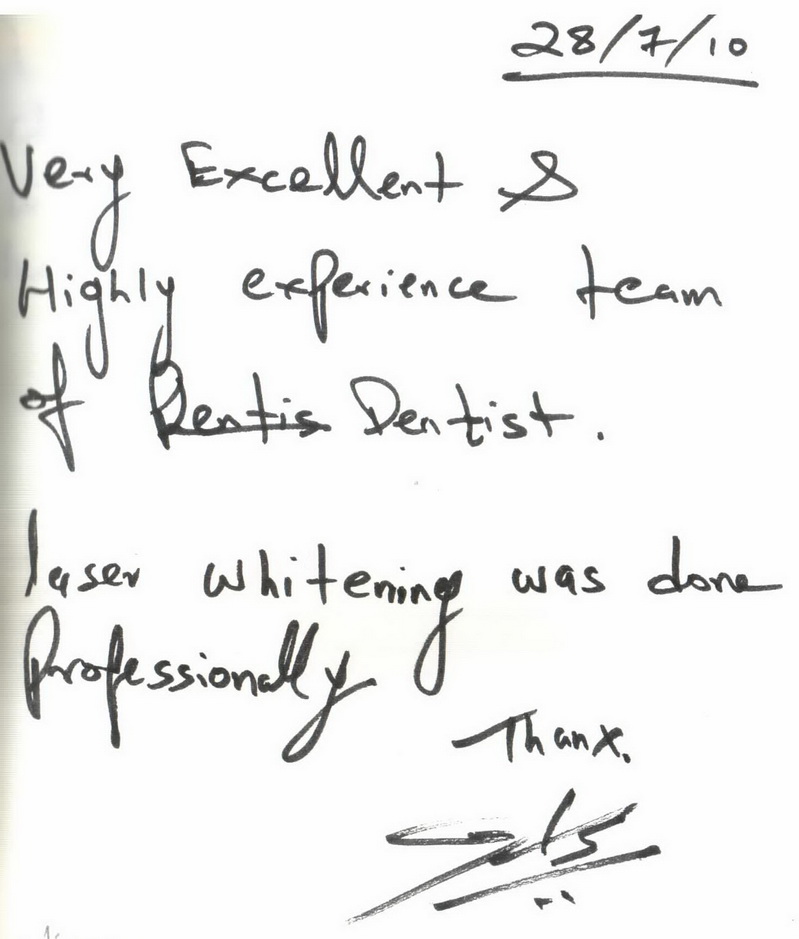 28/7/10
Very Excellent &
Highly experience team
of Dentis Dentist.
laser whitening was done
Professionally
Thanx.